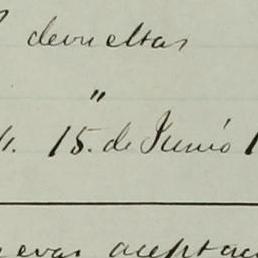 devueltas
"
15. de Junió
evas acepta